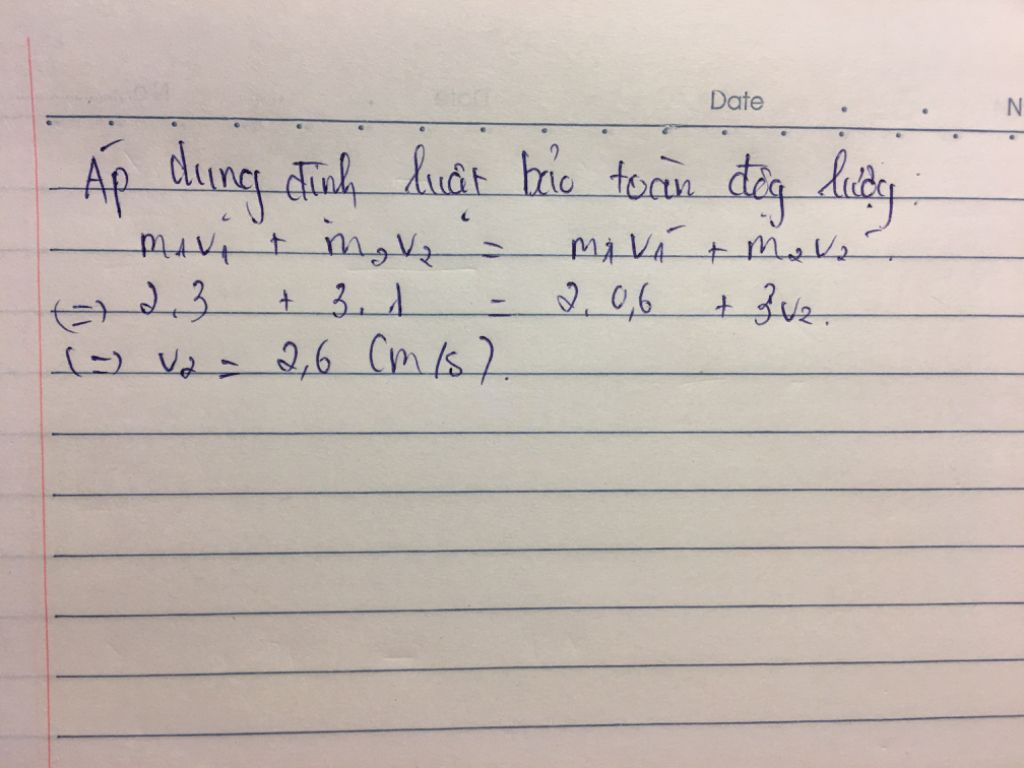 Date N
Áp dụng định luật bảo toàn độg lượg:
m1v1 + m2v2 = m1v1' + m2v2'.
(=) 2.3 + 3.1 = 2.0,6 + 3v2.
(=) v2 = 2,6 (m/s).